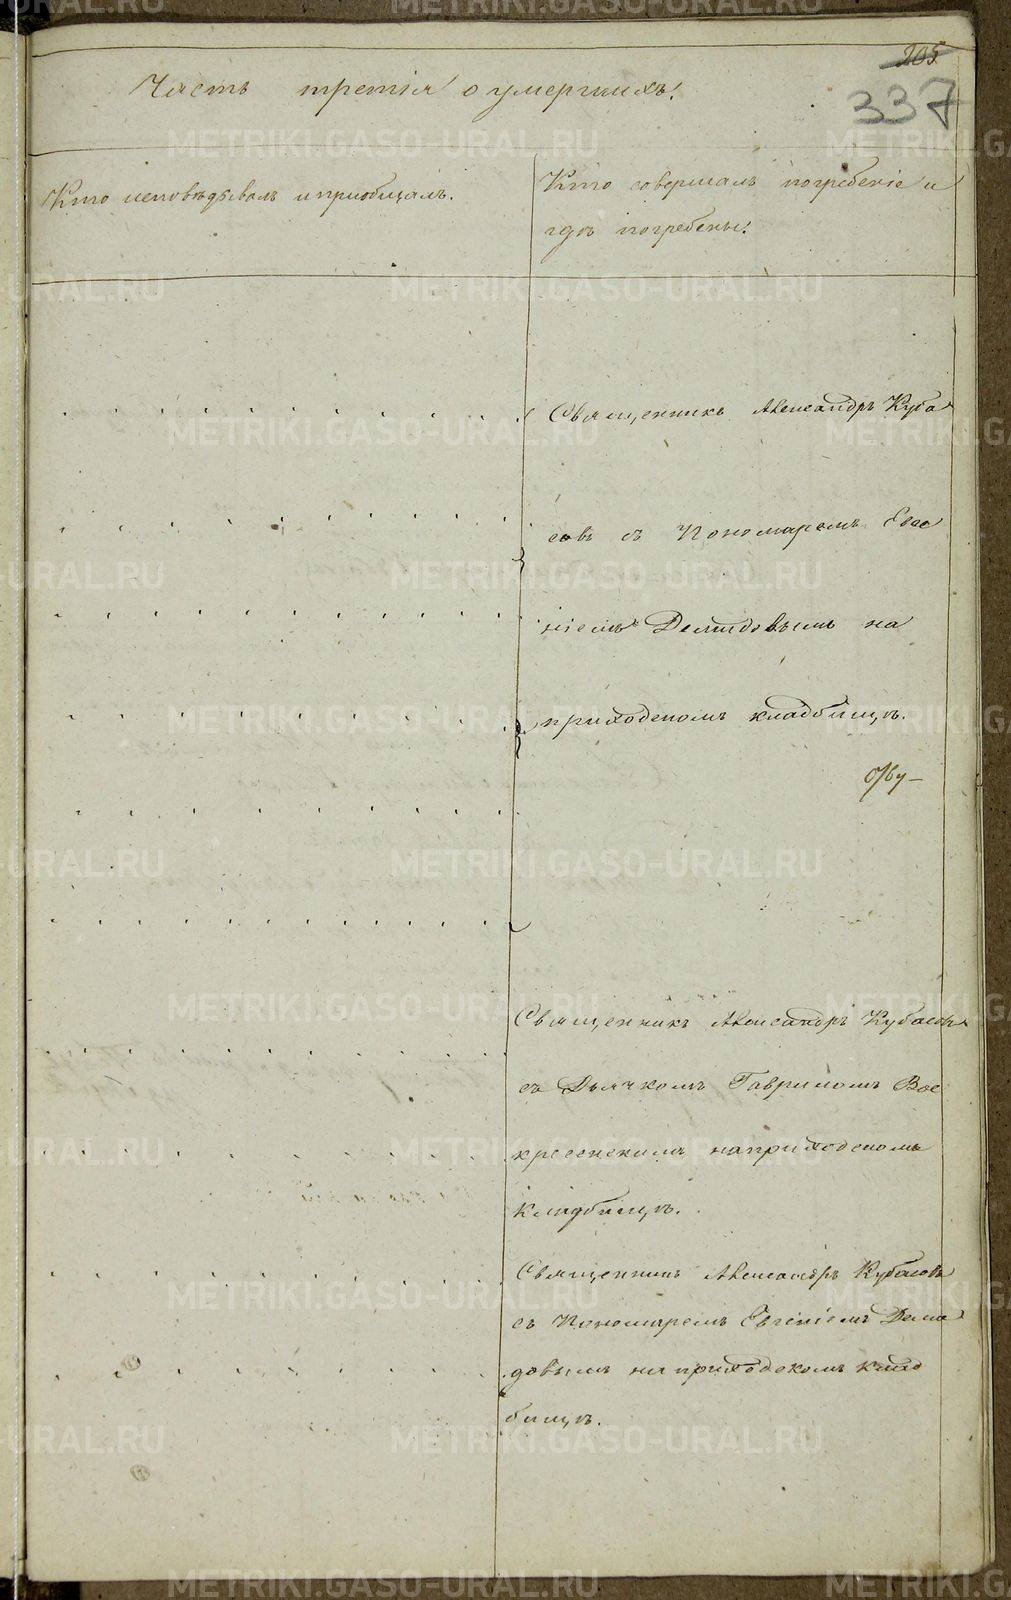 205
337
Часть третія о умершихъ.
Кто исповѣдывалъ и приобщалъ.
Кто совершалъ погребеніе и
гдѣ погребены.
Священникъ Александръ Куба
совъ съ Пономаремъ Евге
ніемъ Демидовымъ на
приходскомъ кладбищѣ.
Священникъ Александръ Кубасовъ
съ Дьячкомъ Гавриломъ Вос
кресенскимъ на приходскомъ
кладбищѣ.
Священникъ Александръ Кубасовъ
съ Пономаремъ Евгеніемъ Деми
довымъ на приходскомъ клад
бищѣ.
METRIKI.GASO-URAL.RU